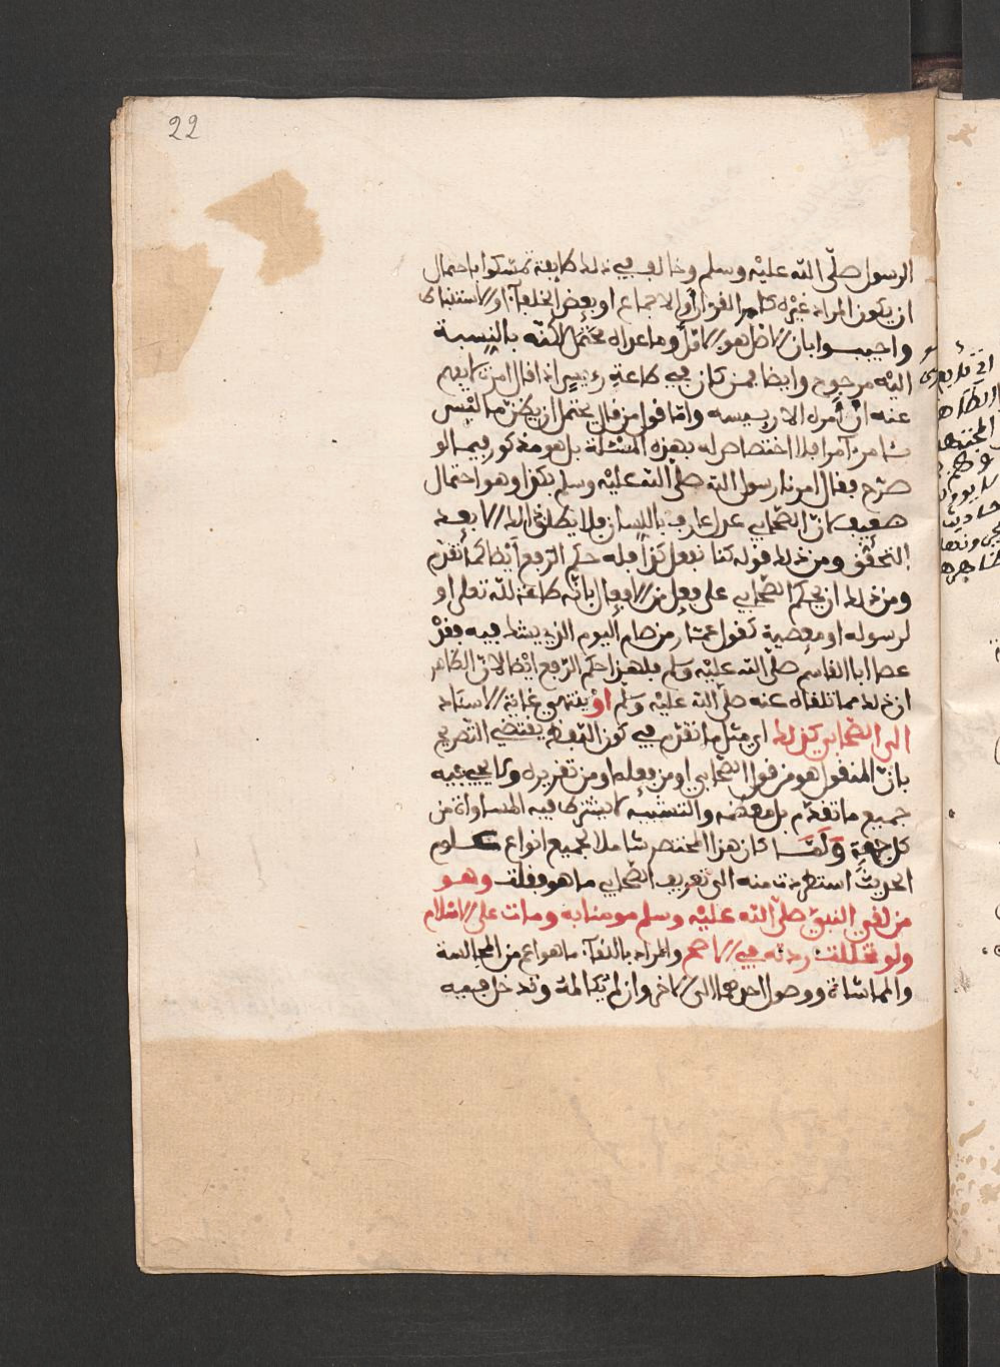 22
الرسول صلّى الله عليْه وسلم وخالف في ذلك طايفة تمسكوا باحتمال
ان يكون المراد غيره كامر القرءان أو الاجماع او بعض الخلفاء او الاستنباط
واجيبوا بان الاصل هو الاول وما عداه محتمل لكنّه بالنسبة
اليْه مرجوح وايضا فمن كان في طاعة رءيس اذا قال امرت لا يفهم
عنه انّ أمره الا رييسه وامّا قول من قال يحتمل ان يظنّ ما ليْس
بامر امرا فلا اختصاص له بهذه المسْئلة بل هو مذكور فيما لو
صرّح فقال امرنا رسول الله صلّى الله عليْه وسلم بكذا وهو احتمال
ضعيف لانّ الصّحابي عدل عارف باللسان فلا يطلق ذلك الا بعد
التحقّق ومن ذلك قوله كنا نفعل كذا فله حكم الرّفع أيْضا كما تقدّم
ومن ذلك ان يحكم الصّحابي على فعل من الافعال بانّه طاعة لله تعلى او
لرسوله او معصية كقول عمّار من صام اليوم الذي يشك فيه فقدْ
عصا ابا القاسم صلّى الله عليْه وسَلم فلهذا حكم الرّفع ايْضا لانّ الظاهر
ان ذلك مما تلقاه عنه صلّى الله عليْه وسَلم اوْ ينتهي غاية الاسناد
الى الصّحابي كذلك اي مثل ما تقدّم في كون اللّفظ يقتضي التّصريح
بانّ المنقول هو من قول الصّحابي او من فعله او من تقريره ولا يجيء فيه
جميع ما تقدّم بل معظمه والتشبيه لا يشترط فيه المساواة من
كل جهة ولَمّا كان هذا المختصر شاملا لجميع انواع علوم
الحديث استطردت منه الى تعريف الصّحابي ما هو فقلت وهو
من لقي النبيّ صلّى الله عليْه وسلم مومنا به ومات على الاسْلام
ولو تخللت ردته في الاصح والمراد باللقاء ما هو اعم من المجالسة
والمماشاة ووصول احدهما الى الاخر وان لم يكالمه وتدخل فيه